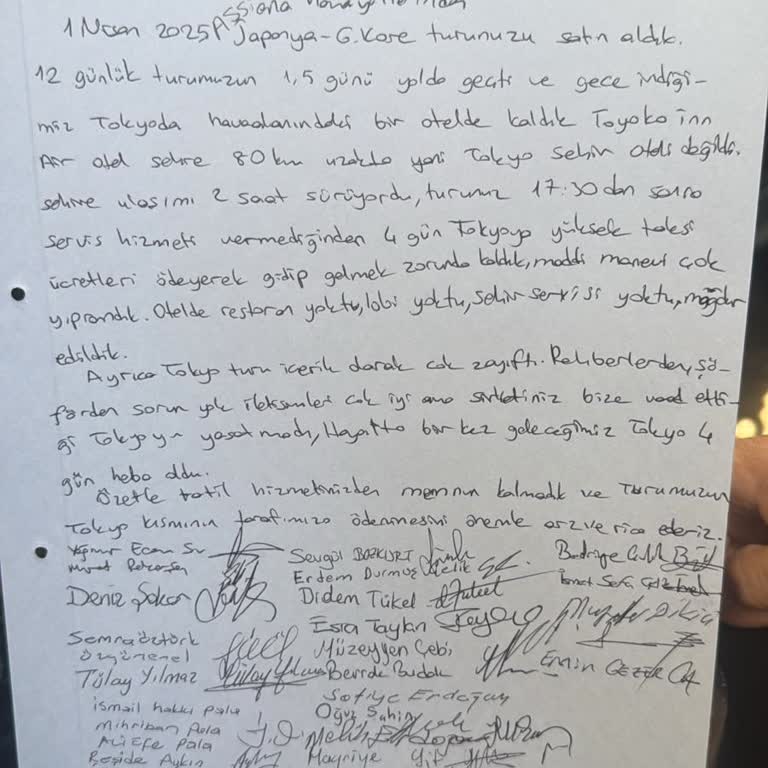 1 Nisan 2025 Japonya-G.Kore turunuzu satın aldık.
12 günlük turumuzun 1,5 günü yolda geçti ve gece indiği-
miz Tokyoda havaalanındaki bir otelde kaldık Toyoko inn
Air otel şehre 80 km uzakta yani Tokyo Şehir oteli değildi.
şehire ulaşımı 2 saat sürüyordu, turumuz 17:30 dan sonra
servis hizmeti vermediğinden 4 gün Tokyoya yüksek taksi
ücretleri ödeyerek gidip gelmek zorunda kaldık, maddi manevi çok
yıprandık. Otelde restoran yoktu, lobi yoktu, şehir servisi yoktu, mağdur
edildik.
Ayrıca Tokyo turu içerik olarak çok zayıftı. Rehberlerden, şö-
förden sorun yok iletişimleri çok iyi ama şirketiniz bize vaad etti-
ği Tokyoyu yaşatmadı, Hayatta bir kez geleceğimiz Tokyo 4
gün heba oldu.
Özetle tatil hizmetinizden memnun kalmadık ve Turumuzun
Tokyo kısmının tarafımıza ödenmesini önemle arz ve rica ederiz.
Sevgül BOZKURT
Erdem Durmuş
Deniz Şakar
Didem Tükel
Esra Taykın
Semra Öztürk
Müzeyyen Çebi
Tülay Yılmaz
EMİN GEZER
Safiye Erdoğan
ismail hakkı pala
Oğuz Şahin
Mihriban Pala
Hayriye